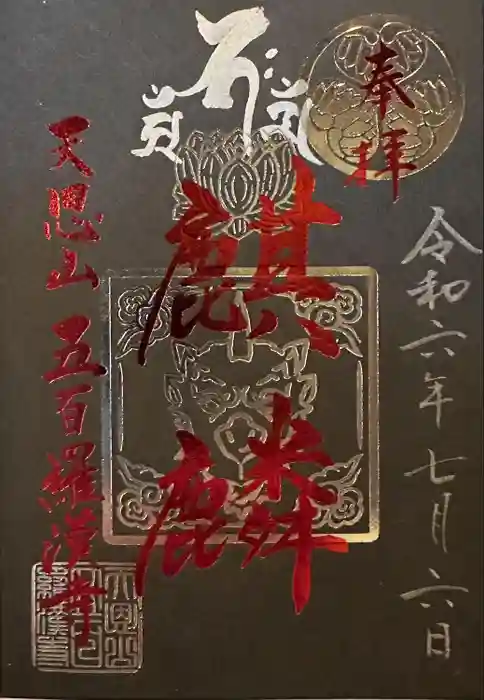 奉拝
令和六年七月六日
麒麟
天恩山 五百羅漢寺